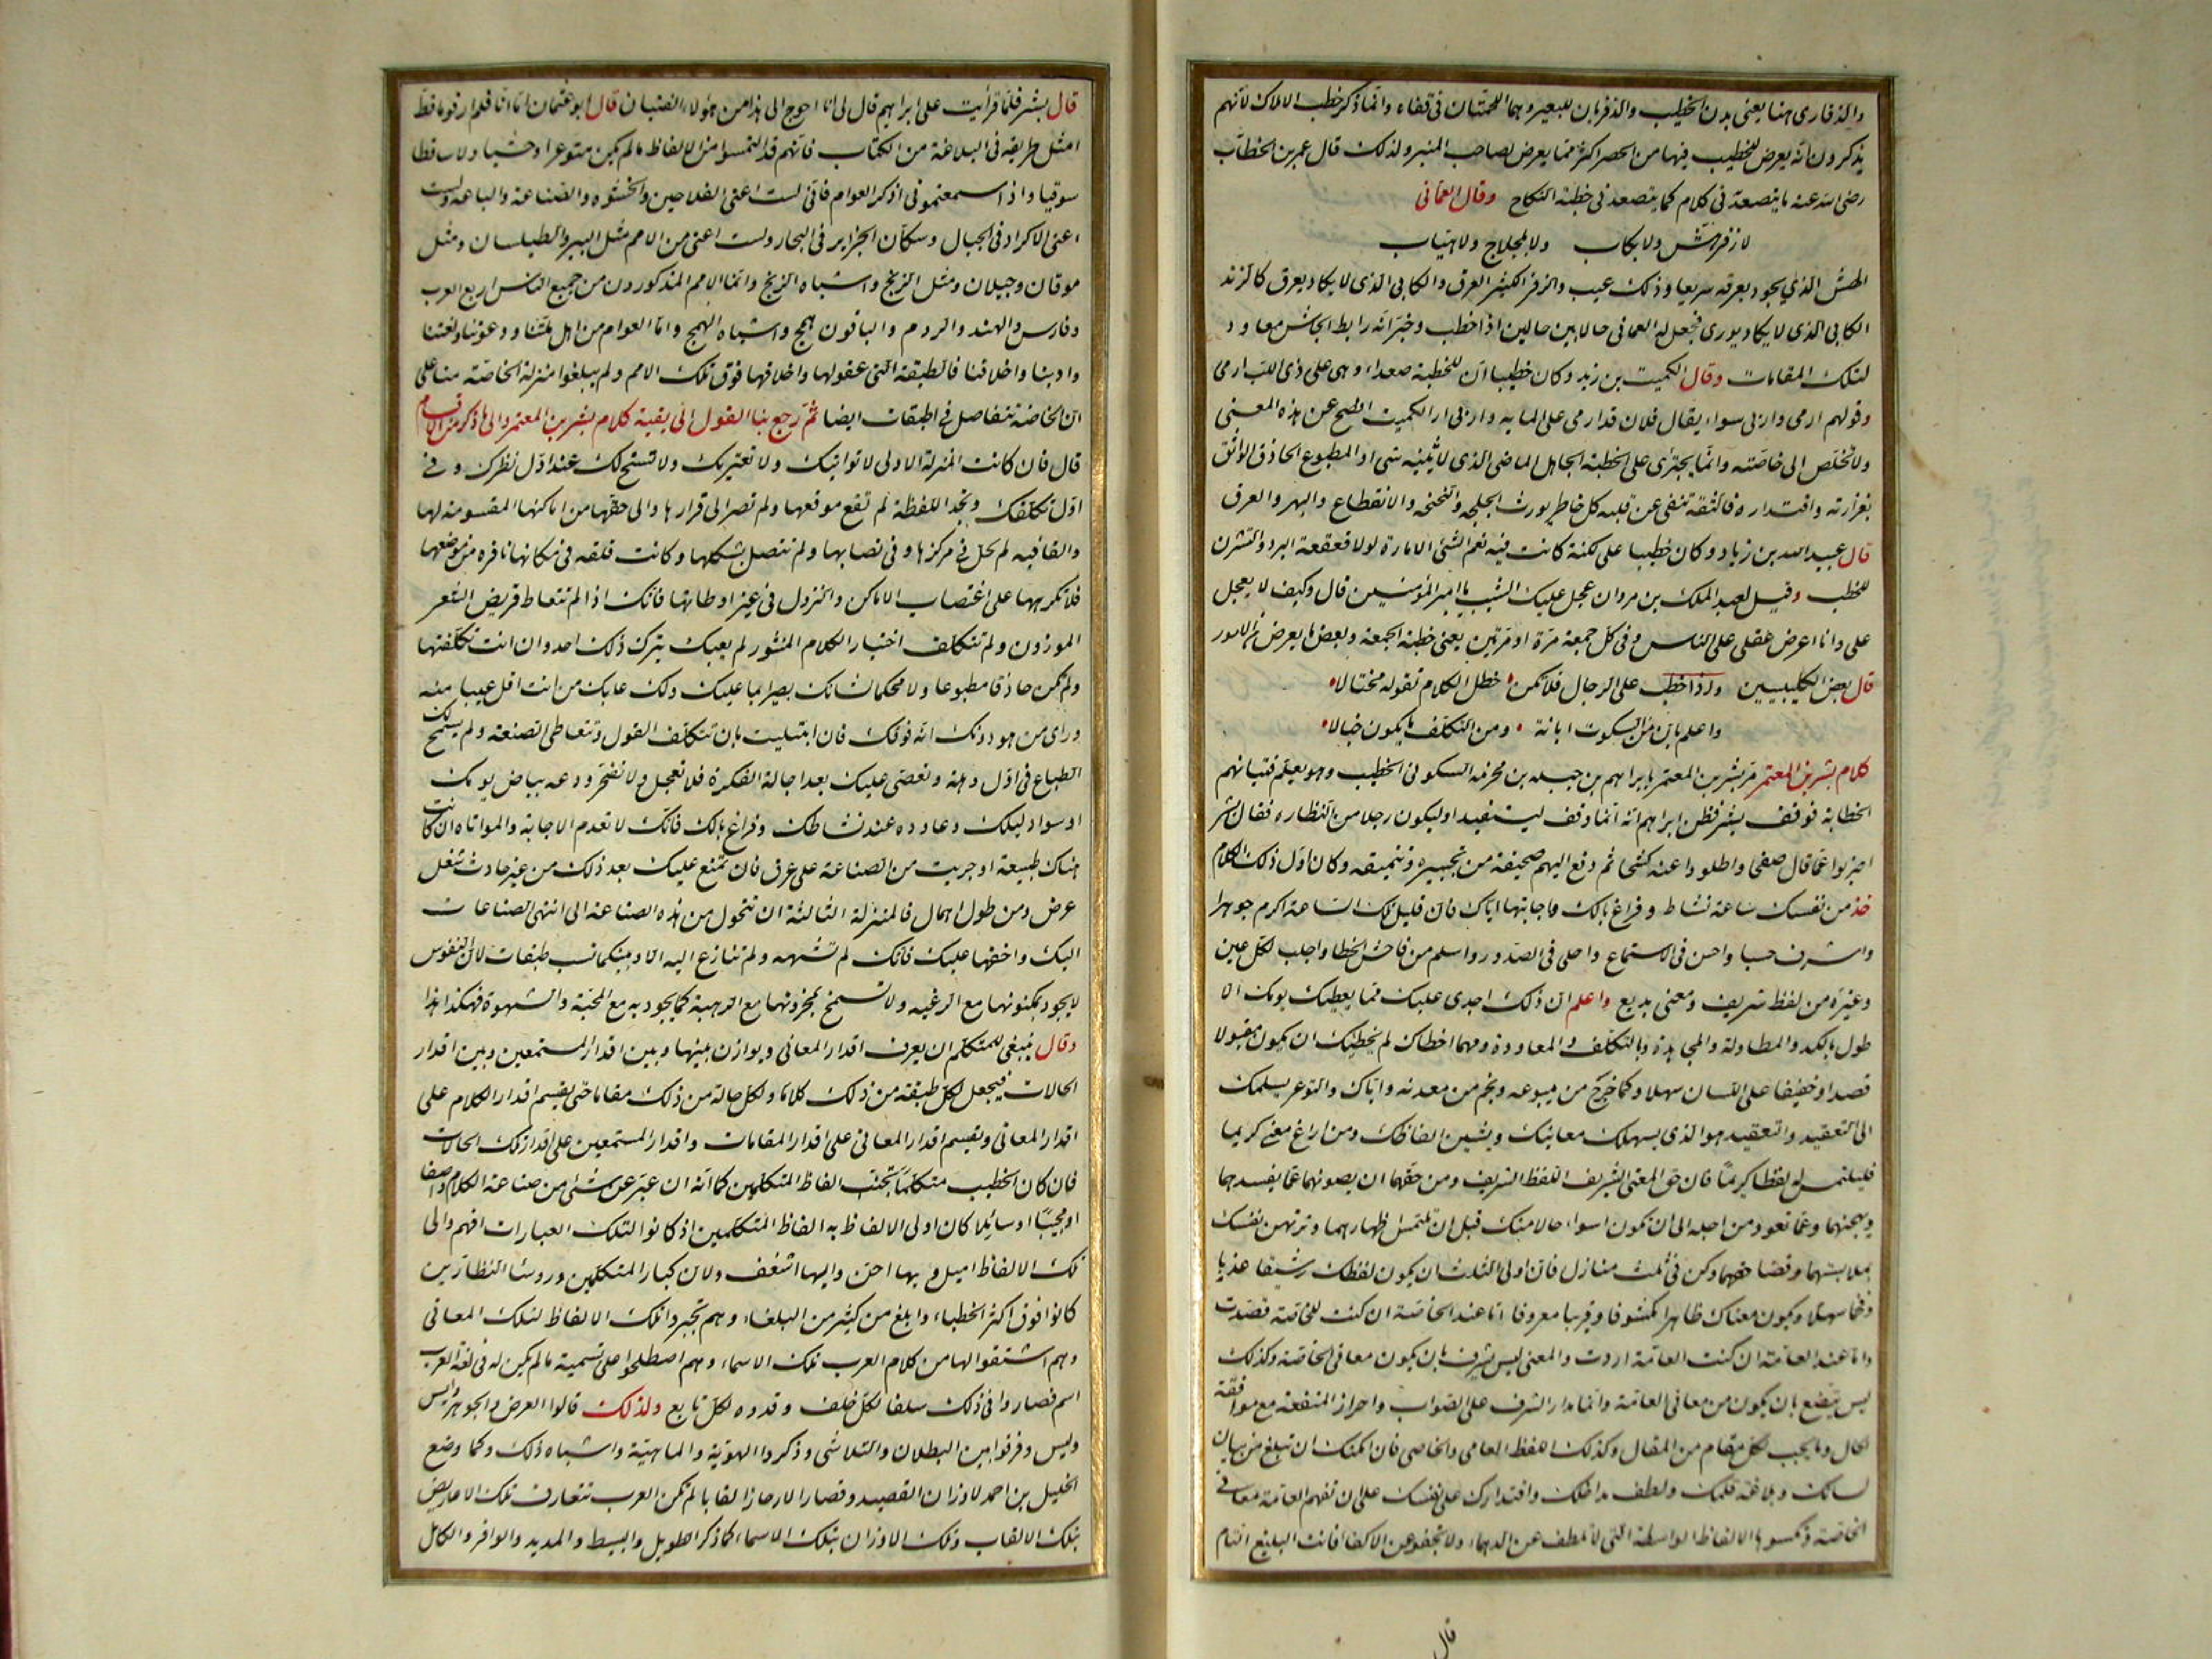 والذفارى هنا يعنى بدن الخطيب والذفريان للبعير وهما اللحمتان فى قفاه وانما ذكر خطب الاملاك لانهم
يذكرون انه يعرض للخطيب فيها من الحصر اكثر مما يعرض لصاحب المنبر ولذلك قال عمر بن الخطاب
رضى الله عنه ما يتصعد فى كلام كما يتصعد فى خطبة النكاح وقال العمانى
لا ذفر هش ولا بكاب ولا بلجلاج ولا هياب
الهش الذى يجود بعرقه سريعا وذلك عيب والذفر الكثير العرق والكابى الذى لا يكاد يعرق كالزند
الكابى الذى لا يكاد يورى فجعل له العمانى حالا بين حالين اذا خطب وخبر انه رابط الجاش معاود
لتلك المقامات وقال الكميت بن زيد وكان خطيبا ان للخطبة صعداء وهى على ذى اللب ارمى
وقولهم ارمى واربى سواء يقال فلان قد ارمى على الماية واربى الكميت افصح عن هذه المعنى
ولا تخلص الى خاصته وانما يجترى على الخطبة الجاهل الماضى الذى لا يثنيه شى او المطبوع الحاذق الواثق
بغزارته واقتداره فالثقة تنفى عن قلبه كل خاطر يورث الجلجه والنحنحه والانقطاع والبهر والعرق
قال عبيد الله بن زياد وكان خطيبا على لكنة كانت فيه نعم الشئ الامارة لولا قعقعة البرد والتشرن
للخطب وقيل لعبد الملك بن مروان عجل عليك الشيب يا امير المؤمنين قال وكيف لا يعجل
على وانا اعرض عقلى على الناس فى كل جمعة مرة او مرتين يعنى خطبة الجمعة وبعض ما يعرض من الامور
قال بعض الكلبيين واذا خطب على الرجال فلا تكن خطل الكلام تقوله مختالا
واعلم بان من السكوت ابانة ومن التكلف ما يكون خبالا
كلام بشر بن المعتمر مر بشر بن المعتمر بابراهيم بن جبله بن مخرمه السكونى الخطيب وهو يعلم فتيانهم
الخطابة فوقف بشر فظن ابراهيم انه انما وقف ليستفيد او ليكون رجلا من النظاره فقال بشر
اضربوا عما قال صفحا واطووا عنه كشحا ثم دفع اليهم صحيفة من تحبيره وتنميقه وكان اول ذلك الكلام
خذ من نفسك ساعة نشاط وفراغ بالك واجابتها اياك فان قليل تلك الساعة اكرم جوهرا
واشرف حسبا واحسن فى الاستماع واحلى فى الصدور واسلم من فاحش الخطا واجلب لكل عين
وغرة من لفظ شريف ومعنى بديع واعلم ان ذلك اجدى عليك مما يعطيك يومك الا
طول بالكد والمطاولة والمجاهدة وبالتكلف والمعاودة ومهما اخطاك لم يخطئك ان يكون مقبولا
قصدا وخفيفا على اللسان سهلا وكما خرج من ينبوعه ونجم من معدنه واياك والتوعر يسلمك
الى التعقيد والتعقيد هو الذى يستهلك معانيك ويشين الفاظك ومن اراغ معنى كريما
فليلتمس له لفظا كريما فان حق المعنى الشريف اللفظ الشريف ومن حقهما ان يصونهما عما يفسدهما
ويهجنهما وعما تعود من اجله الى ان تكون اسواء حالا منك قبل ان تلتمس اظهارهما وترتهن نفسك
بملابستهما وقضا حقهما وكن فى ثلث منازل فان اولى الثلاث ان يكون لفظك رشيقا عذبا
وفخما سهلا ويكون معناك ظاهرا مكشوفا وقريبا معروفا اما عند الخاصة ان كنت للخاصة قصدت
واما عند العامة ان كنت العامة اردت والمعنى ليس يشرف بان يكون معانى الخاصة وكذلك
ليس يتضع بان يكون من معانى العامة وانما مدار الشرف على الصواب واحراز المنفعة مع موافقة
الحال وما يجب لكل مقام من المقال وكذلك اللفظ العامى والخاصى فان امكنك ان تبلغ من بيان
لسانك وبلاغة قلمك ولطف مداخلك واقتدارك على نفسك على ان تفهم العامة معانى
الخاصة وتكسوها الالفاظ الواسطة التى لا تلطف عن الدهماء ولا تجفو عن الاكفا فانت البليغ التام
قال
قال بشر فلما قرأت على ابراهيم قال لى انا احوج الى هذا من هؤلاء الفتيان قال ابو عثمان اما انا فلم ار قوما قط
امثل طريقة فى البلاغة من الكتاب فانهم قد التمسوا من الالفاظ ما لم يكن متوعرا وحشيا ولا ساقطا
سوقيا واذا سمعتمونى اذكر العوام فانى لست اعنى الفلاحين والحشوه والصناعة والباعه ولست
اعنى الاكراد فى الجبال وسكان الجزاير فى البحار ولست اعنى من الامم مثل الببر والطيلسان ومثل
موقان وجيلان ومثل الزنج واشباه الزنج وانما الامم المذكورون من جميع الناس اربع العرب
وفارس والهند والروم والباقون همج واشباه الهمج واما العوام من اهل ملتنا ودعوتنا ولغتنا
وادبنا واخلاقنا فالطبقة التى عقولها واخلاقها فوق تلك الامم ولم يبلغوا منزلة الخاصة منا على
ان الخاصة تتفاضل فى الطبقات ايضا ثم رجع بنا القول الى بقية كلام بشر بن المعتمر والى ما ذكر من الاقسام
قال فان كانت المنزلة الاولى لا تواتيك ولا تعتريك ولا تسنح لك عند اول نظرك وفى
اول تكلفك وتجد اللفظة لم تقع موقعها ولم تصر الى قرارها والى حقها من اماكنها المقسومة لها
والقافيه لم تحل فى مركزها وفى نصابها ولم تتصل بشكلها وكانت قلقه فى مكانها نافره من موضعها
فلا تكرهها على اغتصاب الاماكن والنزول فى غير اوطانها فانك اذا لم تتعاط قريض الشعر
الموزون ولم تتكلف اختيار الكلام المنثور لم يعبك بترك ذلك احد وان انت تكلفتها
ولم تكن حاذقا مطبوعا ولا محكما لشانك بصيرا بما عليك ولك عابك من انت اقل عيبا منه
وراى من هو دونك انه فوقك فان ابتليت بان تتكلف القول وتتعاطى الصنعة ولم يسمح لك
الطباع فى اول وهلة وتعصى عليك بعد اجالة الفكرة فلا تعجل ولا تضجر ودعه بياض يومك
او سواد ليلك وعاوده عند نشاطك وفراغ بالك فانك لا تعدم الاجابة والمواتاه ان كانت
هناك طبيعة او جريت من الصناعة على عرق فان تمنع عليك بعد ذلك من غير حادث شغل
عرض ومن طول اهمال فالمنزلة الثالثة ان تتحول من هذه الصناعة الى اشهى الصناعات
اليك واخفها عليك فانك لم تشتهه ولم تنازع اليه الا وبينكما نسب طبقات لان النفوس
لا يجود بمكنونها مع الرغبه ولا تسمح بمخزونها مع الرهبة كما يجود به مع المحبة والشهوة فهكذا هذا
وقال ينبغى للمتكلم ان يعرف اقدار المعانى ويوازن بينها وبين اقدار المستمعين وبين اقدار
الحالات فيجعل لكل طبقة من ذلك كلاما ولكل حالة من ذلك مقاما حتى يقسم اقدار الكلام على
اقدار المعانى ويقسم اقدار المعانى على اقدار المقامات واقدار المستمعين على اقدار تلك الحالات
فان كان الخطيب متكلما تجنب الفاظ المتكلمين كما انه ان عبر عن شئ من صناعة الكلام واصفا
او مجيبا او سائلا كان اولى الالفاظ به الفاظ المتكلمين اذ كانوا لتلك العبارات افهم والى
تلك الالفاظ اميل وبها احن واليها اشغف ولان كبار المتكلمين وروسا النظارين
كانوا فوق اكثر الخطباء وابلغ من كثير من البلغاء وهم تخيروا تلك الالفاظ لتلك المعانى
وهم اشتقوا لها من كلام العرب تلك الاسماء وهم اصطلحوا على تسمية ما لم يكن له فى لغة العرب
اسم فصاروا فى ذلك سلفا لكل خلف وقدوه لكل تابع ولذلك قالوا العرض والجوهر وايس
وليس وفرقوا بين البطلان والتلاشى وذكروا الهوية والماهية واشباه ذلك وكما وضع
الخليل بن احمد لاوزان القصيد وقصار الارجاز القابا لم تكن العرب تتعارف تلك الاعاريض
بتلك الالقاب وتلك الاوزان بتلك الاسماء كما ذكر الطويل والبسيط والمديد والوافر والكامل